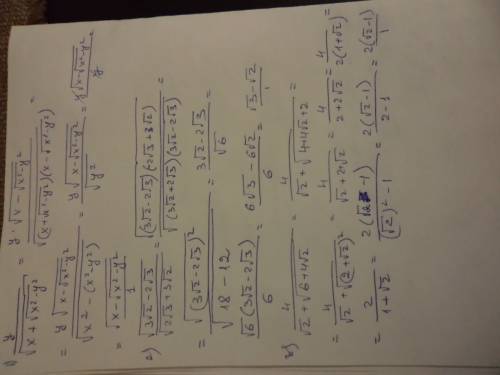 1) y / √(x + √(x²-y²)) = y·√(x - √(x²-y²)) / √((x+√(x²-y²))(x-√(x²-y²))) =
= y√(x-√(x²-y²)) / √(x² - (x²-y²)) = y√(x-√(x²-y²)) / √(y²) = y√(x-√(x²-y²)) / y =
= √(x-√(x²-y²)) / 1
2) √(3√2 - 2√3) / √(2√3+3√2) = √((3√2-2√3)(2√3+3√2)) / √((3√2+2√3)(3√2-2√3)) =
= √((3√2-2√3)²) / √(18-12) = (3√2-2√3) / √6
√6(3√2-2√3) / 6 = (6√3-6√2) / 6 = (√3-√2) / 1
4 / (√2+√(6+4√2)) = 4 / (√2+√(4+4√2+2)) =
= 4 / (√2+√((2+√2)²)) = 4 / (√2+2+√2) = 4 / (2+2√2) = 4 / (2(1+√2)) =
= 2 / (1+√2) = 2(√2-1) / ((√2)²-1) = 2(√2-1) / (2-1) = 2(√2-1) / 1